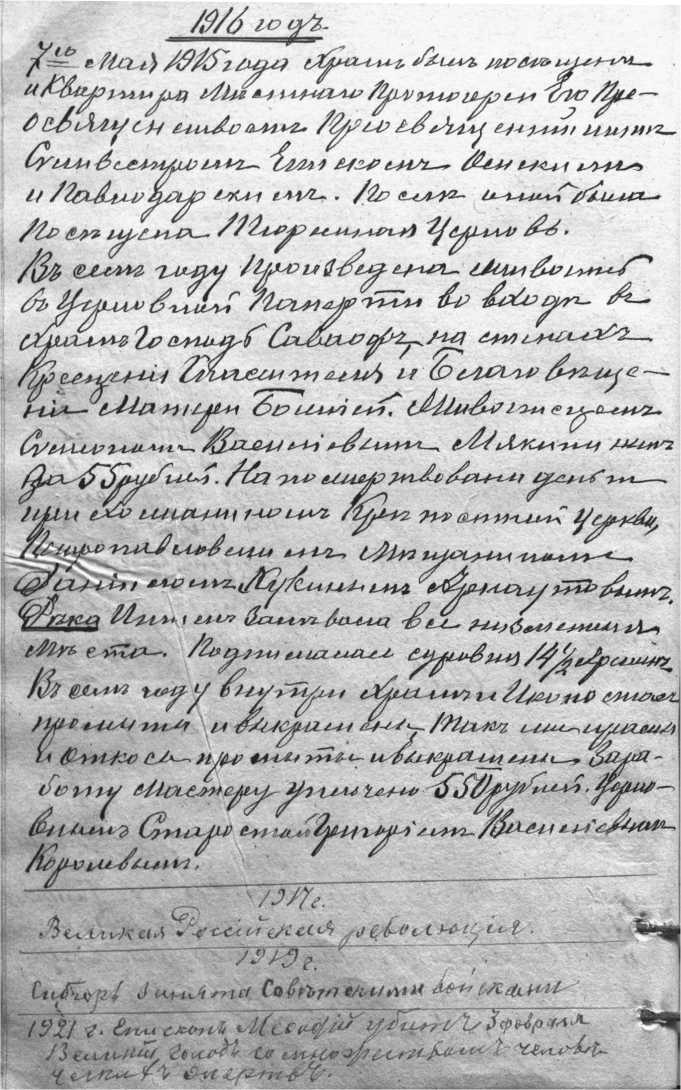 1916 годъ.
7го Мая 1915 года Храмъ былъ посѣщенъ
и Квартира Мѣстнаго Протоіерея Его Пре-
освященствомъ Преосвященнѣйшимъ
Сильвестромъ Епископомъ Омскимъ
и Павлодарскимъ. После оной была
Посѣщена Тюремная Церковь.
Въ семъ году произведена живопись
въ Церковной Паперти во входѣ въ
Храмъ Господь Саваофъ, на стѣнахъ
Крещенія Спасителя и Благовѣще-
нія Матери Божіей. Живописцемъ
Василіевымъ Мякишевымъ
За 55 рублей. На пожертвовани деньги
прихожаниномъ Крѣпостной Церкви,
Петропавловскимъ Мѣщаниномъ
Даніиломъ Лукинымъ Арнаутовымъ.
Рѣка Ишимъ Заливала все низменныя
Мѣста. Поднималась суровня 14½ Аршинъ
Въ семъ году внутри Храмъ и Иконостасъ
промыты и выкрашены, такъ же
и Откосы промыты и выкрашены. За ра-
боту Мастеру уплочено 550 рублей. Церко-
внымъ Старостой Григоріемъ Василіевымъ
Королевымъ.
1917 г.
Великая Россійская революція.
1919 г.
Сибирь занята Совѣтскими войсками
1921 г. Епископъ Мефодій убитъ 3 февраля
Великій голодъ со множествомъ человѣ-
ческихъ смертей.